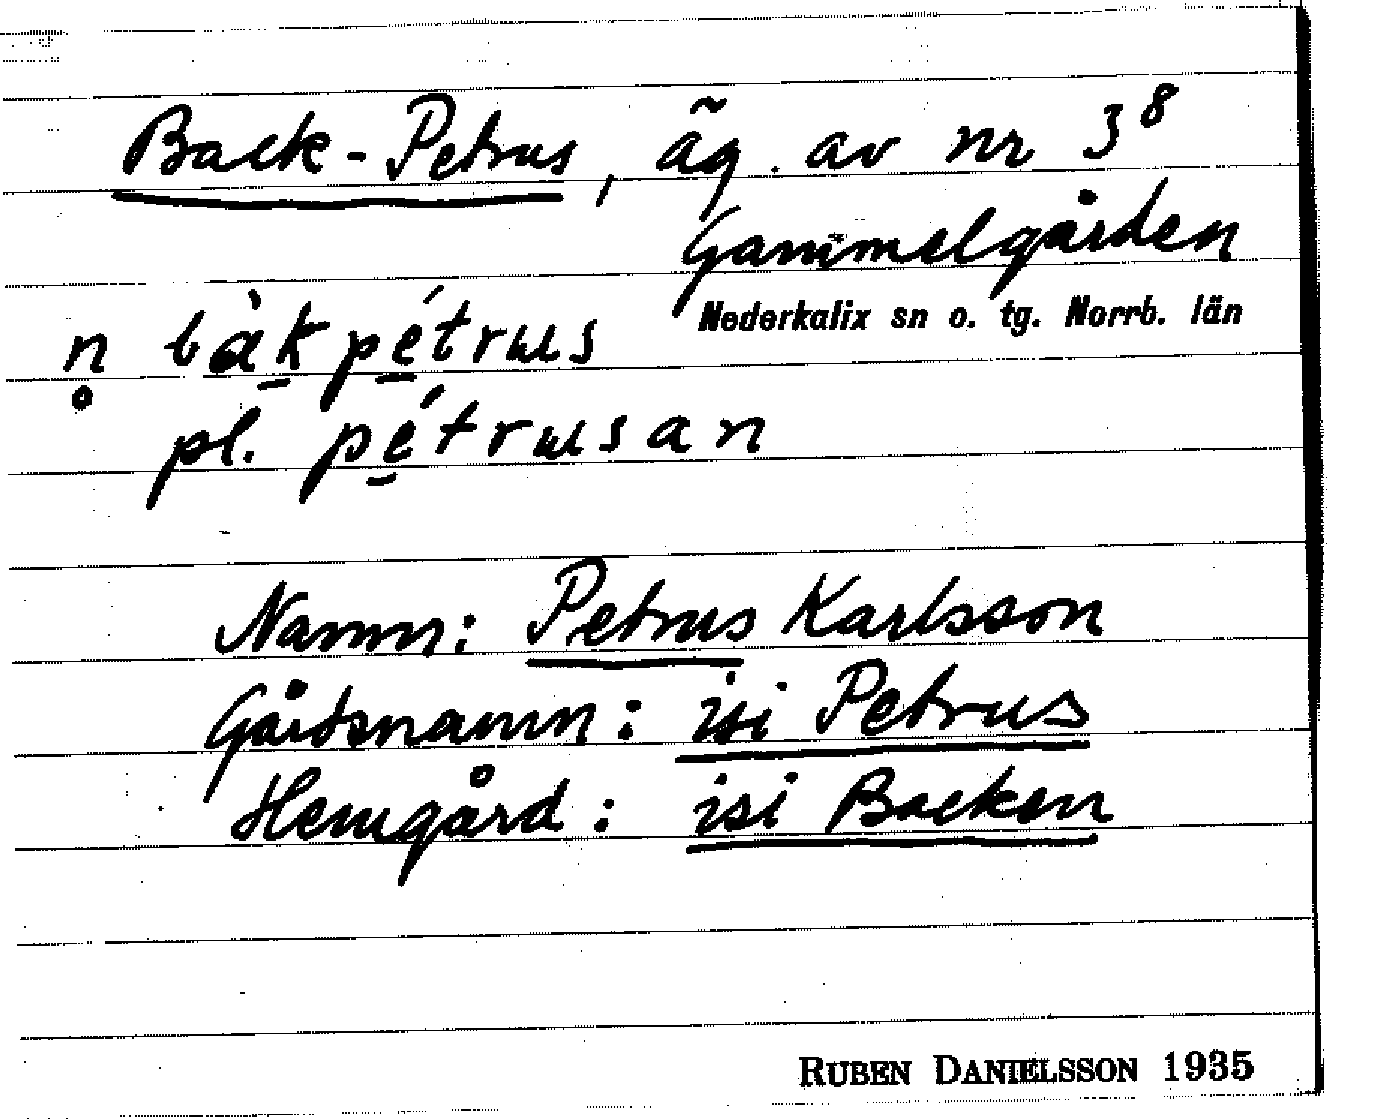 Back-Petrus, äg. av nr 3⁸
Gammelgården
Nederkalix sn o. tg. Norrb. län
n̥ bàk̠pé̠trɯs
pl. pé̠trɯsan
Namn: Petrus Karlsson
Gårdsnamn: isi Petrus
Hemgård: isi Backen
RUBEN DANIELSSON 1935